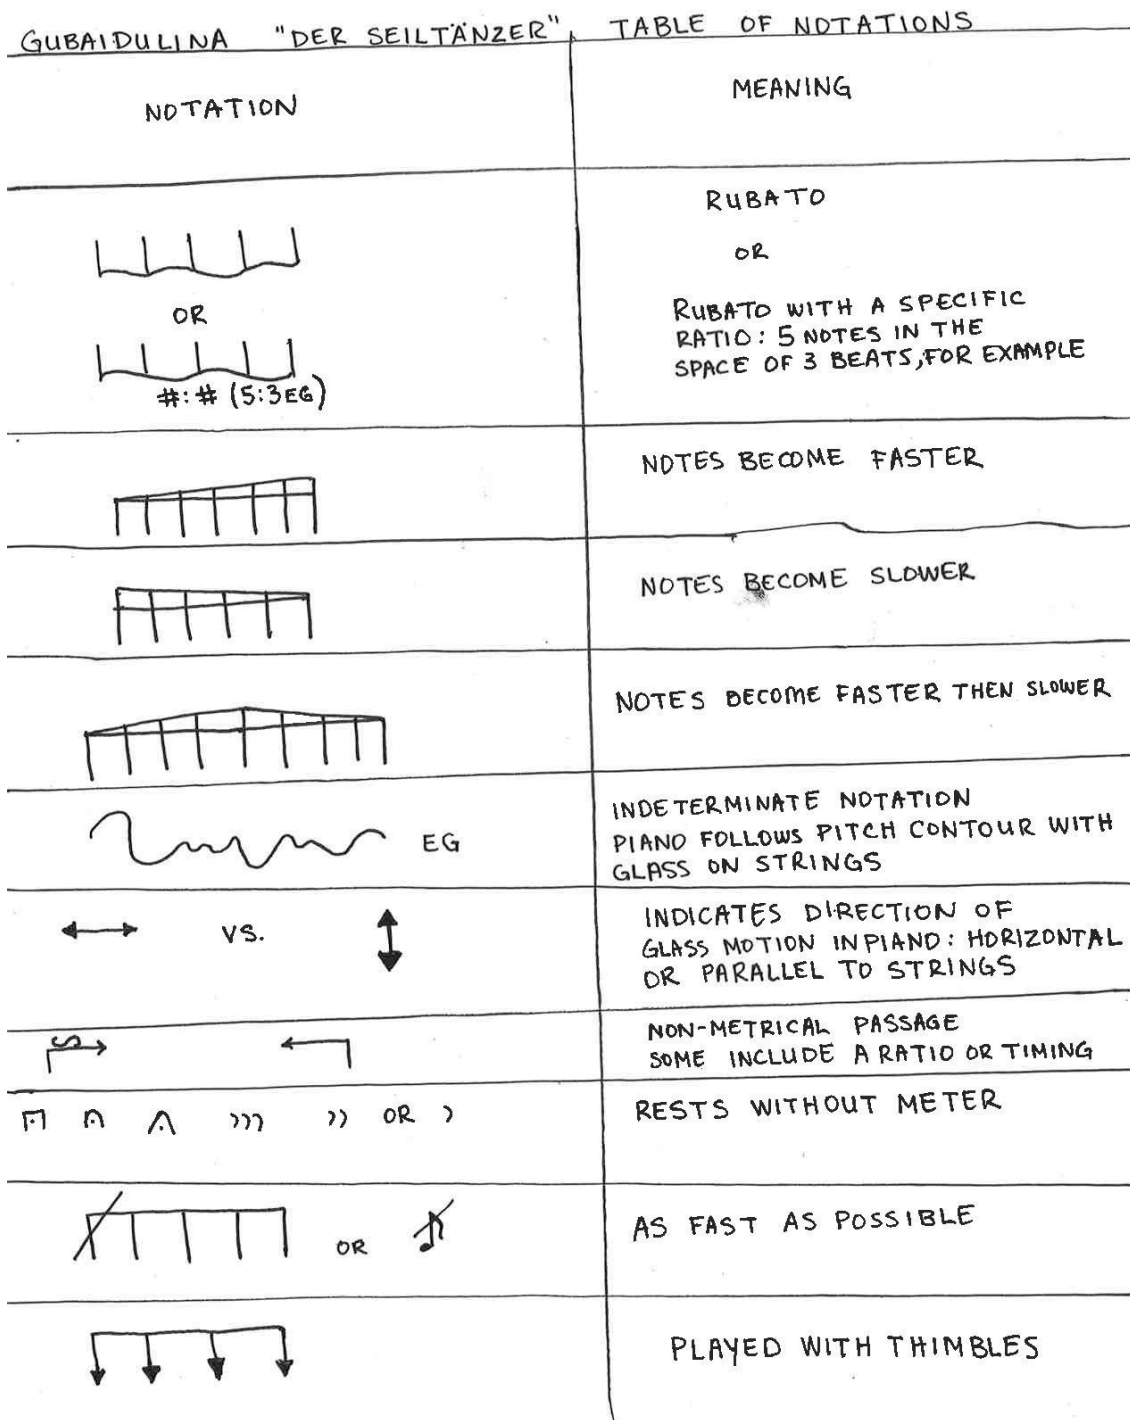 GUBAIDULINA "DER SEILTÄNZER", TABLE OF NOTATIONS
NOTATION
MEANING
OR
#:# (5:3 EG)
RUBATO
OR
RUBATO WITH A SPECIFIC
RATIO: 5 NOTES IN THE
SPACE OF 3 BEATS, FOR EXAMPLE
NOTES BECOME FASTER
NOTES BECOME SLOWER
NOTES BECOME FASTER THEN SLOWER
EG
INDETERMINATE NOTATION
PIANO FOLLOWS PITCH CONTOUR WITH
GLASS ON STRINGS
VS.
INDICATES DIRECTION OF
GLASS MOTION IN PIANO: HORIZONTAL
OR PARALLEL TO STRINGS
S
NON-METRICAL PASSAGE
SOME INCLUDE A RATIO OR TIMING
OR
RESTS WITHOUT METER
OR
AS FAST AS POSSIBLE
PLAYED WITH THIMBLES